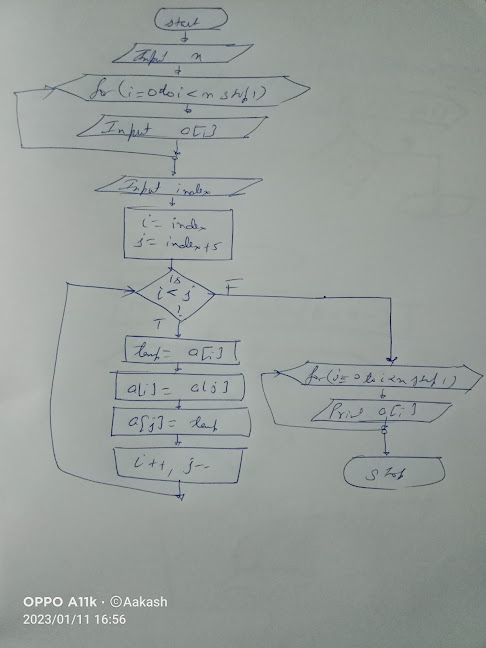 start
Input n
for (i=0 to i < n step 1)
Input a[i]
Input index
i = index
j = index+5
is
i < j
?
F
T
temp = a[i]
a[i] = a[j]
a[j] = temp
i++, j--
for (i=0 to i<n step 1)
Print a[i]
stop
OPPO A11k · ©Aakash
2023/01/11 16:56